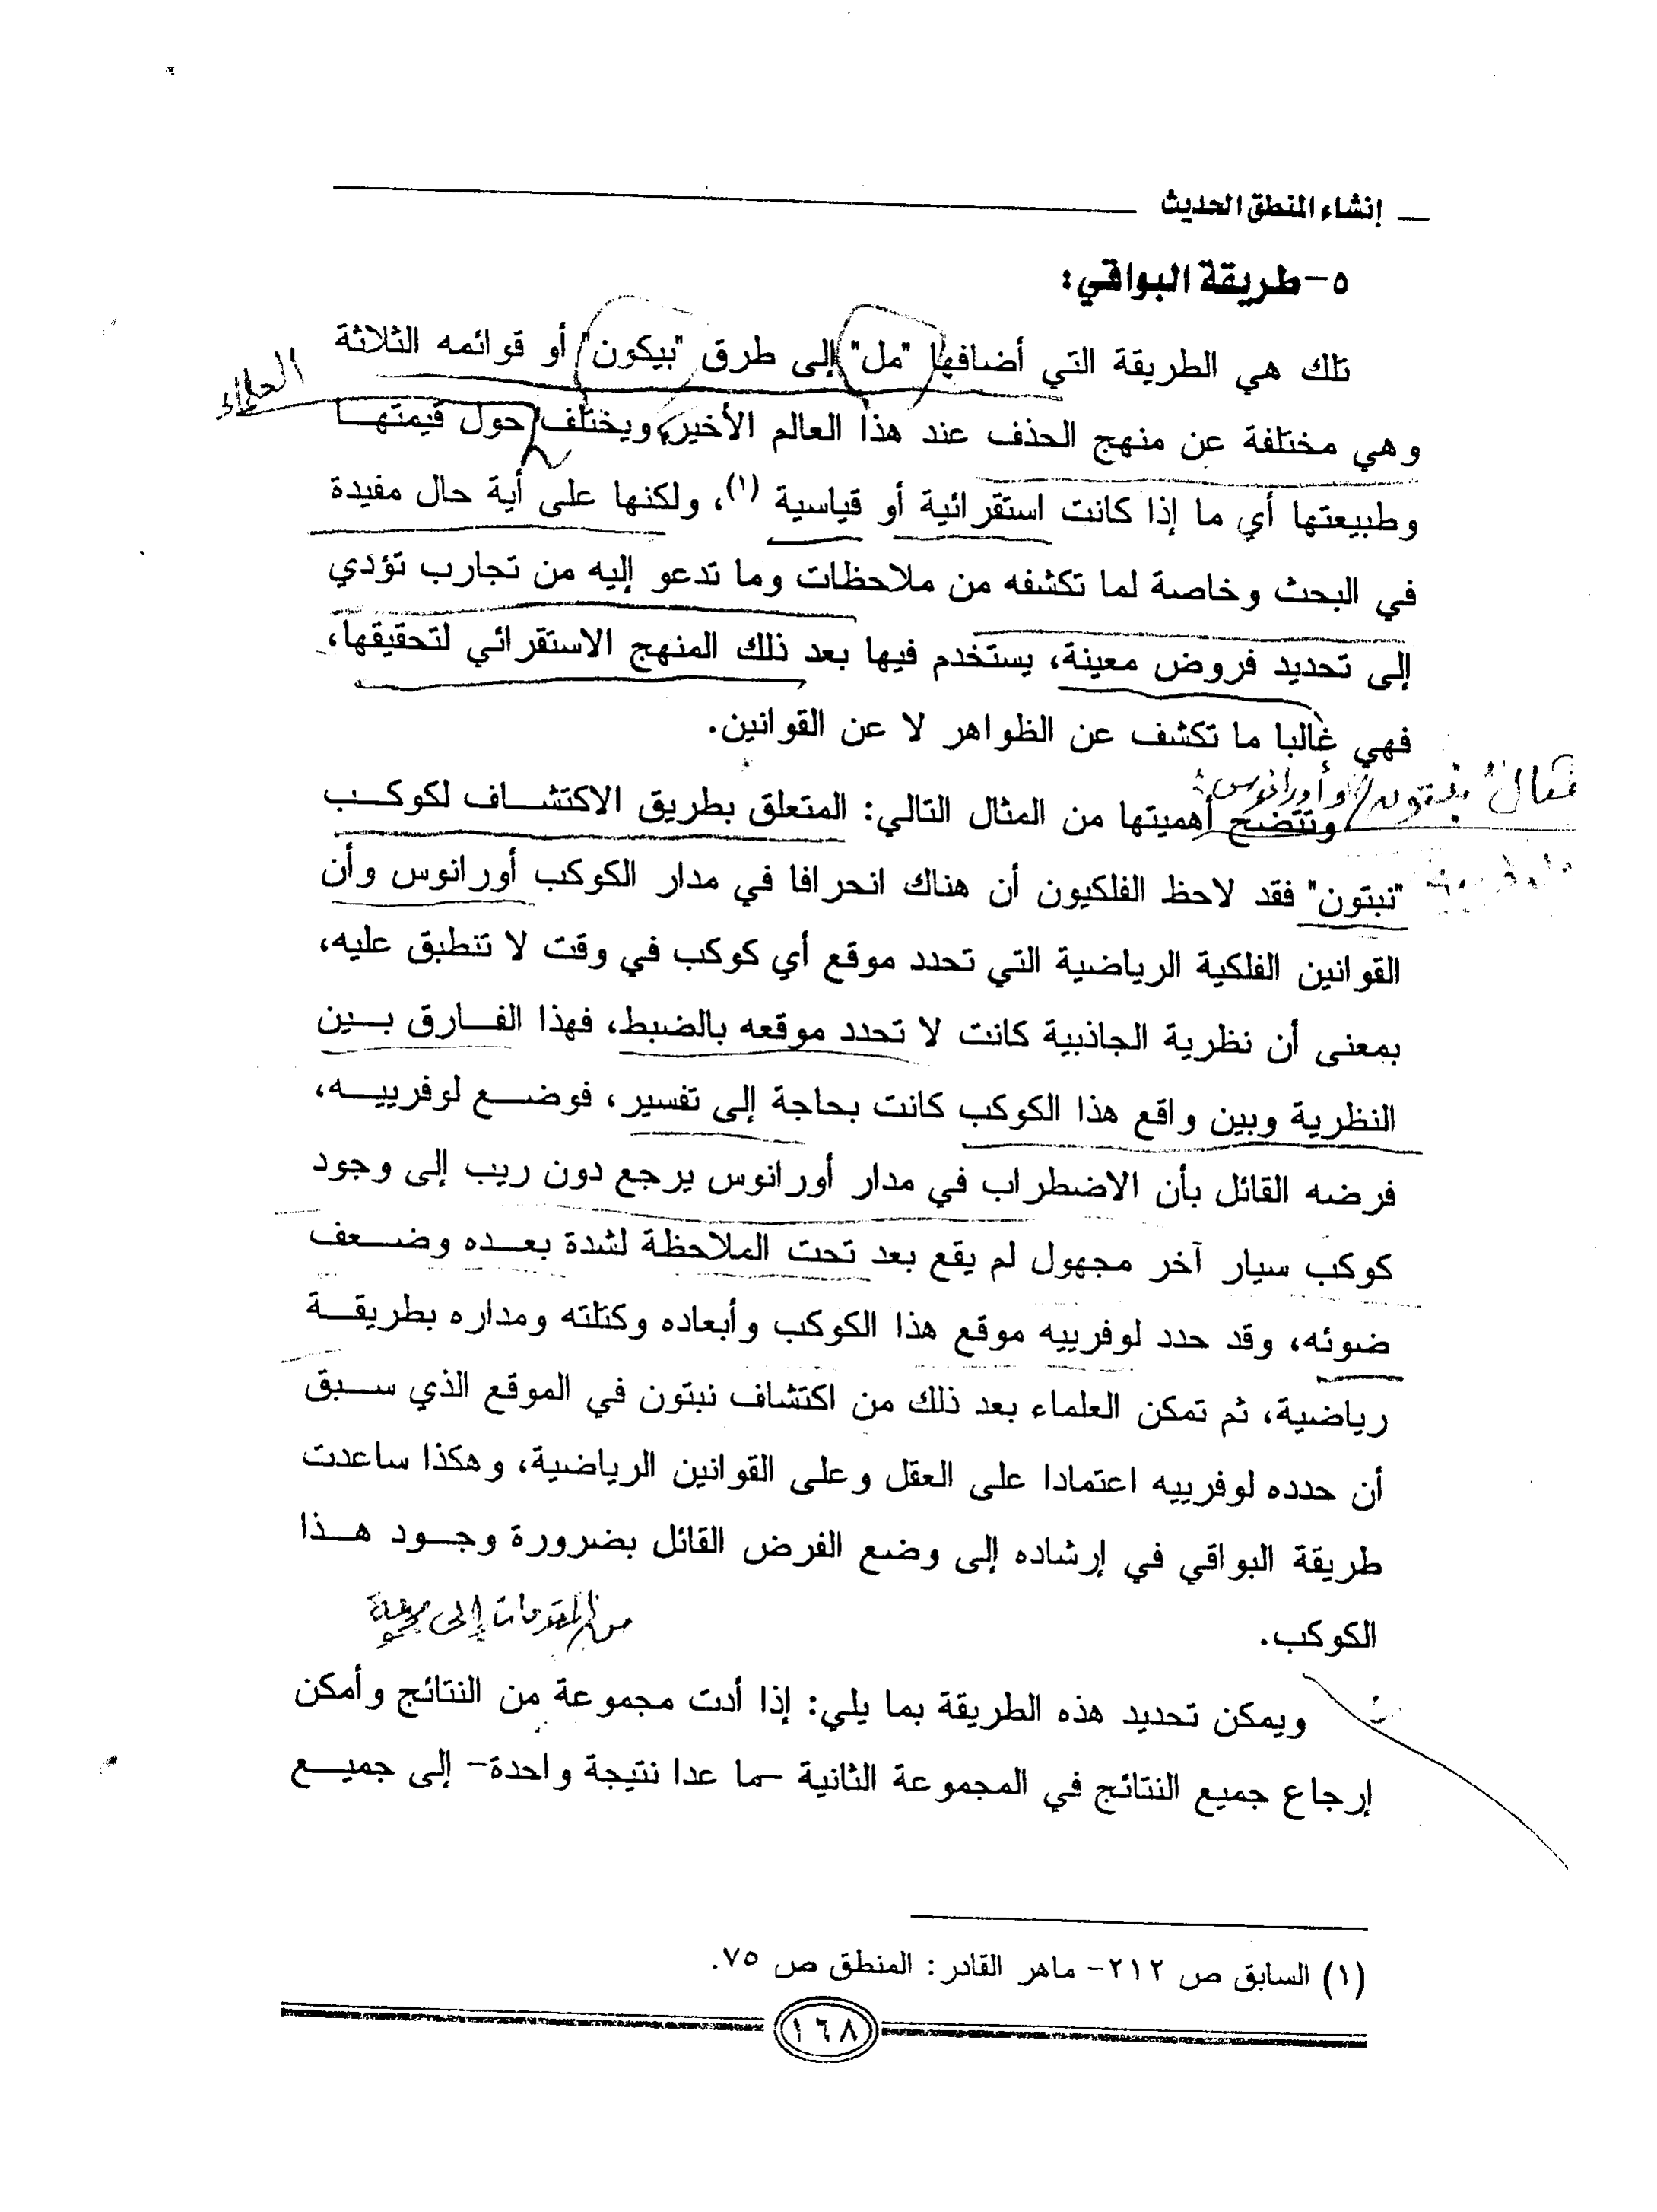 إنشاء المنطق الحديث
٥- طريقة البواقي:
تلك هي الطريقة التي أضافها "مل" إلى طرق "بيكون" أو قوائمه الثلاثة
العلماء
وهي مختلفة عن منهج الحذف عند هذا العالم الأخير، ويختلف حول قيمتها
وطبيعتها أي ما إذا كانت استقرائية أو قياسية (١)، ولكنها على أية حال مفيدة
في البحث وخاصة لما تكشفه من ملاحظات وما تدعو إليه من تجارب تؤدي
إلى تحديد فروض معينة، يستخدم فيها بعد ذلك المنهج الاستقرائي لتحقيقها،
فهي غالبا ما تكشف عن الظواهر لا عن القوانين.
مثال نبتون وأورانوس:
وتتضح أهميتها من المثال التالي: المتعلق بطريق الاكتشاف لكوكب
"نبتون" فقد لاحظ الفلكيون أن هناك انحرافا في مدار الكوكب أورانوس وأن
القوانين الفلكية الرياضية التي تحدد موقع أي كوكب في وقت لا تنطبق عليه،
بمعنى أن نظرية الجاذبية كانت لا تحدد موقعه بالضبط، فهذا الفارق بين
النظرية وبين واقع هذا الكوكب كانت بحاجة إلى تفسير، فوضع لوفرييه،
فرضه القائل بأن الاضطراب في مدار أورانوس يرجع دون ريب إلى وجود
كوكب سيار آخر مجهول لم يقع بعد تحت الملاحظة لشدة بعده وضعف
ضوئه، وقد حدد لوفرييه موقع هذا الكوكب وأبعاده وكتلته ومداره بطريقة
رياضية، ثم تمكن العلماء بعد ذلك من اكتشاف نبتون في الموقع الذي سبق
أن حدده لوفرييه اعتمادا على العقل وعلى القوانين الرياضية، وهكذا ساعدت
طريقة البواقي في إرشاده إلى وضع الفرض القائل بضرورة وجود هذا
الكوكب.
من المقدمات إلى
ويمكن تحديد هذه الطريقة بما يلي: إذا أدت مجموعة من النتائج وأمكن
إرجاع جميع النتائج في المجموعة الثانية -ما عدا نتيجة واحدة- إلى جميع
(١) السابق ص ٢١٢- ماهر القادر: المنطق ص ٧٥.
١٦٨